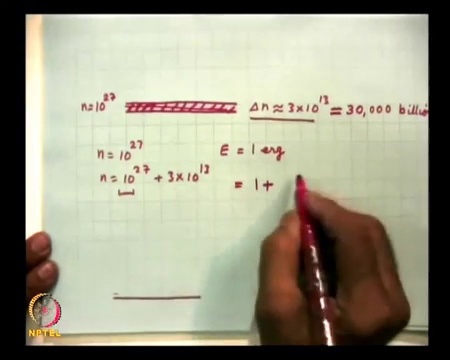 n=10^27 Δn ≈ 3×10^13 = 30,000 billio
n = 10^27 E = 1 erg
n = 10^27 + 3×10^13 = 1 +
NPTEL